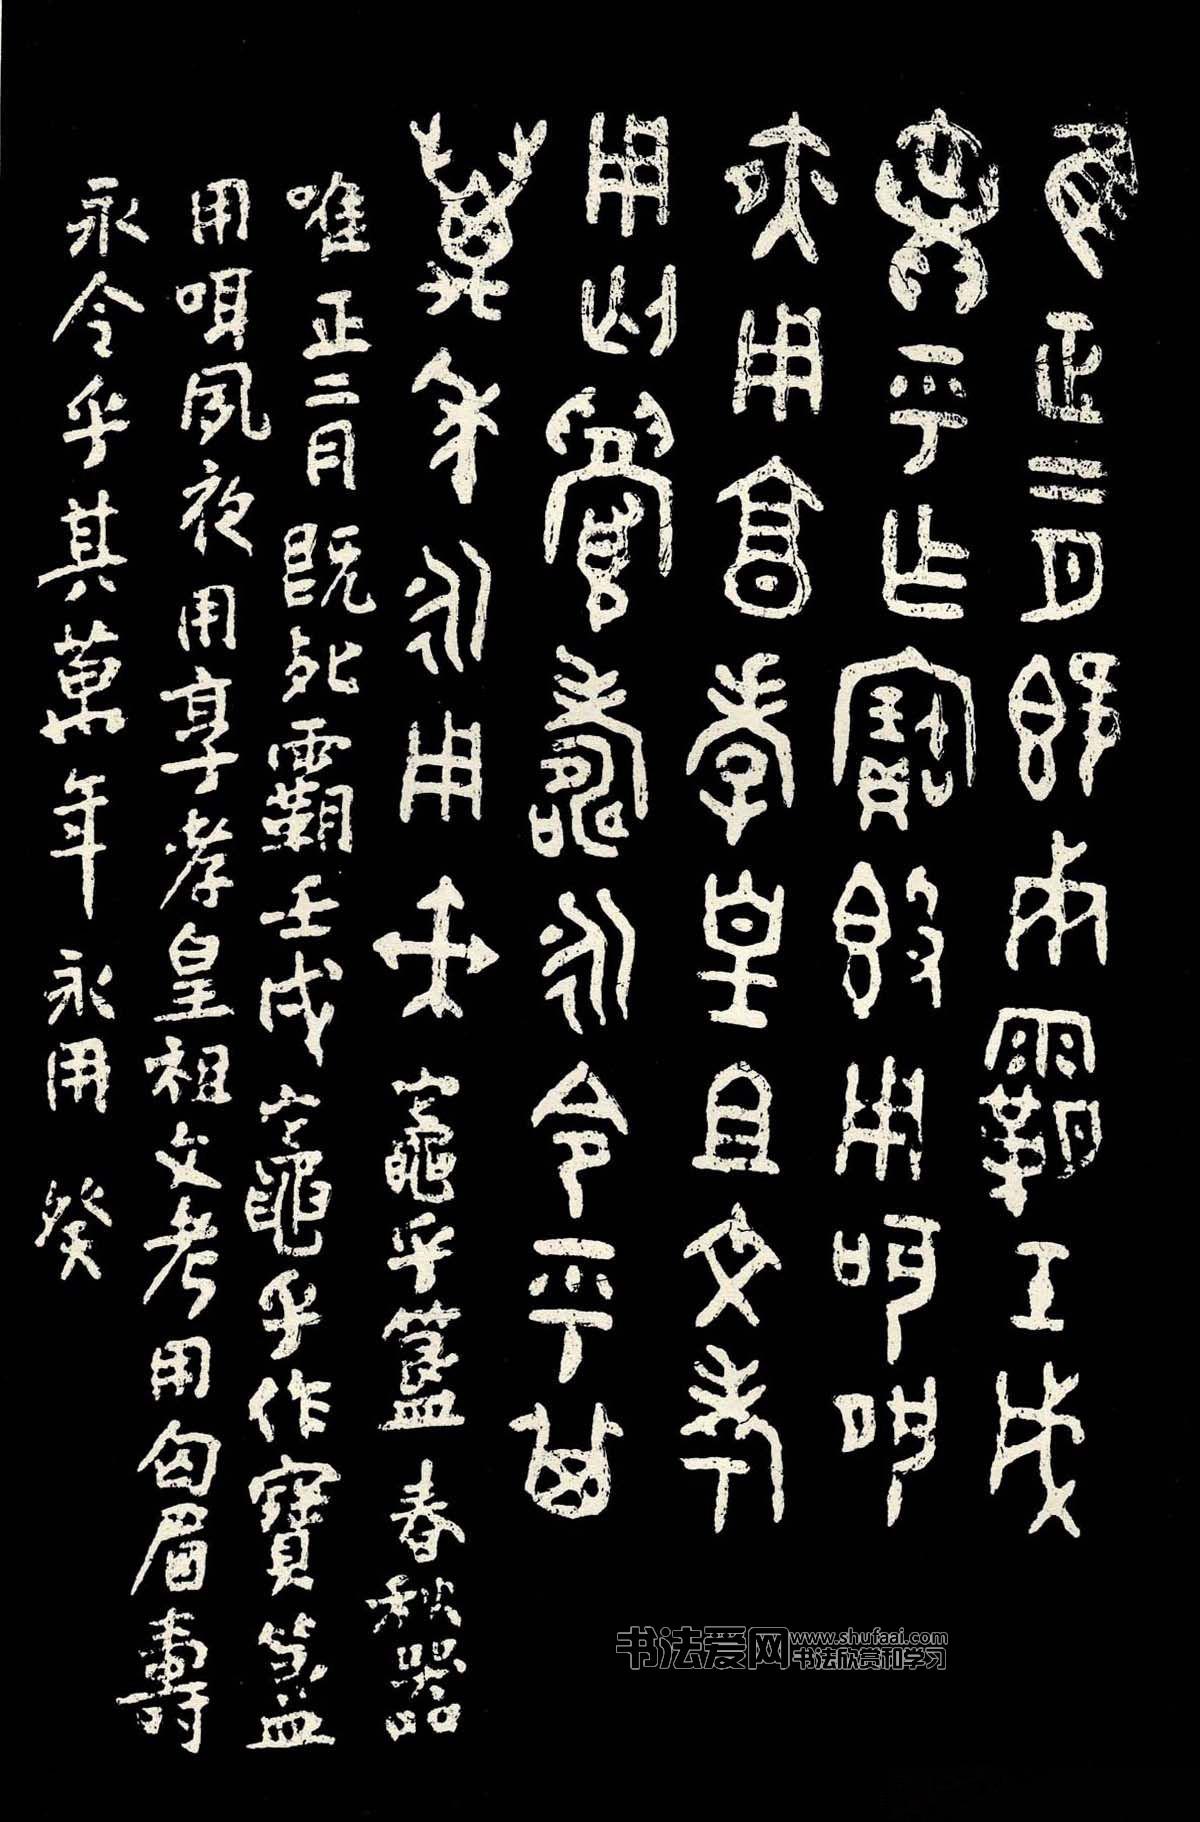 隹正二月既死霸壬戌
乎乍寶𣪘用
夙夜用享孝皇且文考
用匄眉壽永令乎其
萬年永用
竈乎簋 春秋器
唯正二月既死霸壬戌竈乎作寶簋
用咡夙夜用享孝皇祖文考用匄眉壽
永令乎其萬年永用 癸
书法爱网 www.shufaai.com
书法欣赏和学习